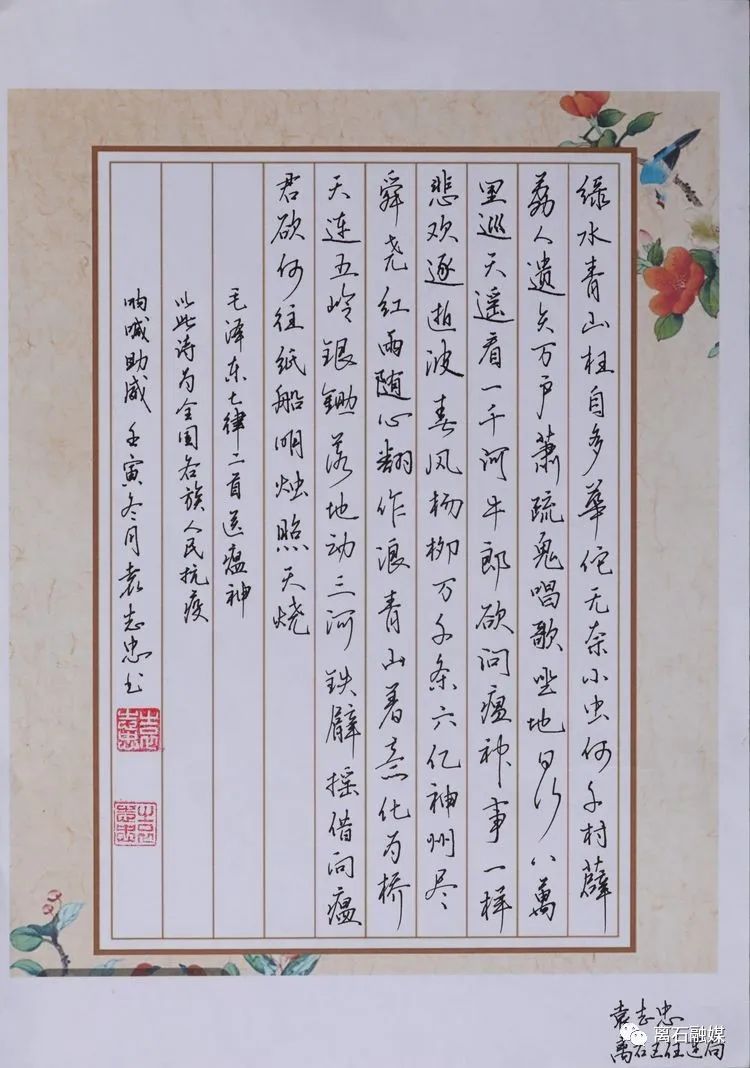 绿水青山枉自多華佗无奈小虫何千村薜
荔人遗矢万户萧疏鬼唱歌坐地日行八萬
里巡天遥看一千河牛郎欲问瘟神事一样
悲欢逐逝波春风杨柳万千条六亿神州尽
舜尧红雨随心翻作浪青山着意化为桥
天连五岭银锄落地动三河铁臂摇借问瘟
君欲何往纸船明烛照天烧
毛泽东七律二首送瘟神
以此诗为全国各族人民抗疫
呐喊助威 壬寅冬月袁志忠书
袁志忠
离石融媒
离石